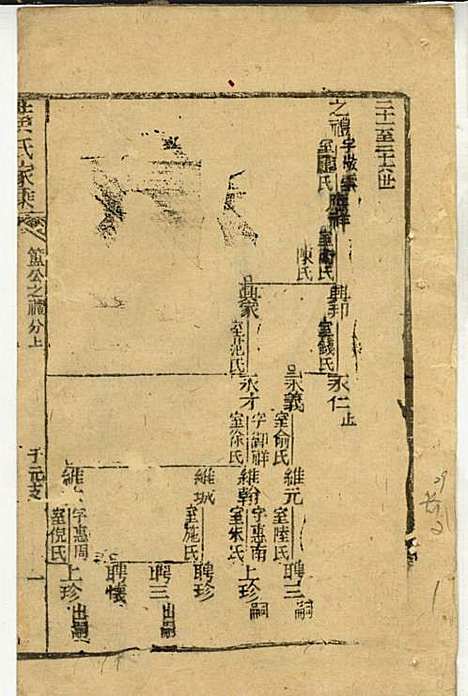 二十一至二十六世
之禮 字敬
室 氏
祥
陳氏
興邦
室錢氏
永仁 止
興家
室范氏
永義
室俞氏
永才
字御祥
室徐氏
維元
室陸氏
聘三 嗣
維翰
字惠南
室朱氏
上珍 嗣
維城
室施氏
聘珍
聘三 出嗣
聘懷
維
字惠周
室倪氏
上珍 出嗣
黄氏家乘
籃公之禮分上
子元支
一